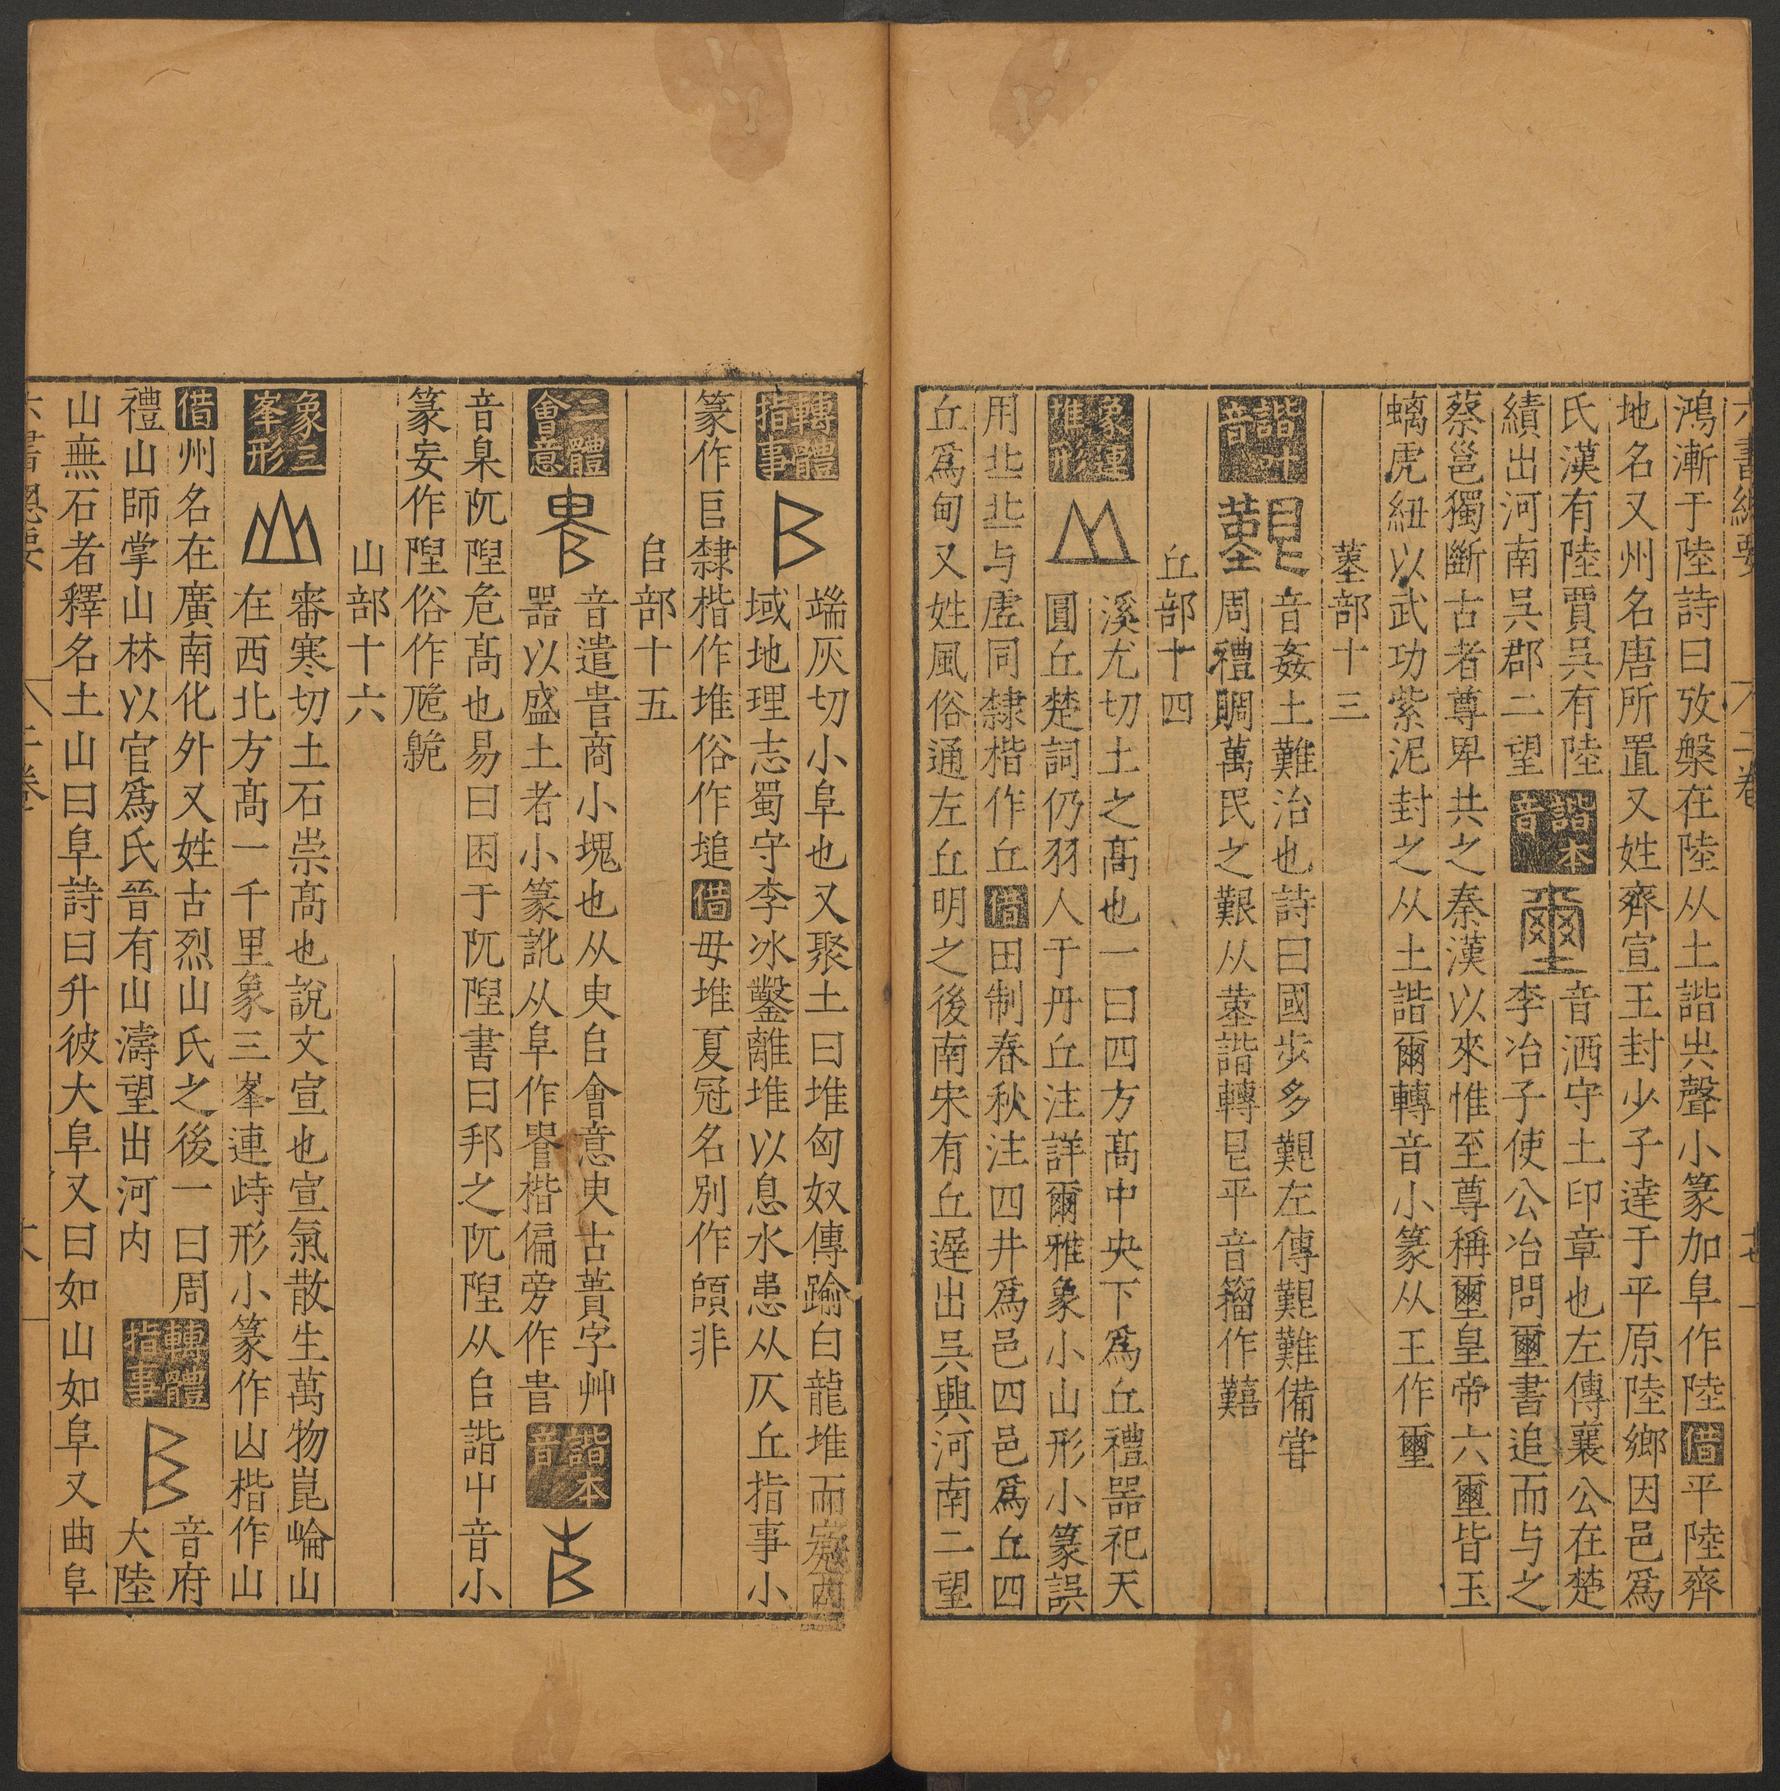 鴻漸于陸詩曰攷槃在陸从土諧㒵聲小篆加阜作陸借平陸齊
地名又州名唐所置又姓齊宣王封少子達于平原陸鄉因邑爲
氏漢有陸賈吳有陸
績出河南吳郡二望
諧本音
音洒守土印章也左傳襄公在楚
李冶子使公冶問壐書追而与之
蔡邕獨斷古者尊卑共之秦漢以來惟至尊稱壐皇帝六壐皆玉
螭虎紐以武功紫泥封之从土諧爾轉音小篆从王作璽
堇部十三
諧叶音
艱
音姦土難治也詩曰國步多艱左傳艱難備嘗
周禮賙萬民之艱从堇諧轉㫐平音籀作囏
丘部十四
象連堆形
溪尤切土之髙也一曰四方髙中央下爲丘禮器祀天
圓丘楚詞仍羽人于丹丘注詳爾雅象小山形小篆誤
用北北与虗同隸楷作丘借田制春秋注四井爲邑四邑爲丘四
丘爲甸又姓風俗通左丘明之後南宋有丘遲出吳興河南二望
轉體指事
端灰切小阜也又聚土曰堆匈奴傳踰白龍堆而
域地理志蜀守李冰鑿離堆以息水患从仄丘指事小
篆作𠂤隸楷作堆俗作塠借毋堆夏冠名別作䭔非
𠂤部十五
二體會意
音遣𠳋商小塊也从臾𠂤會意臾古蕢字艸
器以盛土者小篆訛从阜作𨺔楷偏旁作𠳋
諧本音
音臬阢隉危髙也易曰困于阢隉書曰邦之阢隉从𠂤諧屮音小
篆妄作隉俗作卼臲
山部十六
象三峯形
審寒切土石崇髙也說文宣也宣氣散生萬物崑崘山
在西北方髙一千里象三峯連峙形小篆作山楷作山
借州名在廣南化外又姓古烈山氏之後一曰周
禮山師掌山林以官爲氏晉有山濤望出河内
轉體指事
音府
大陸
山無石者釋名土山曰阜詩曰升彼大阜又曰如山如阜又曲阜